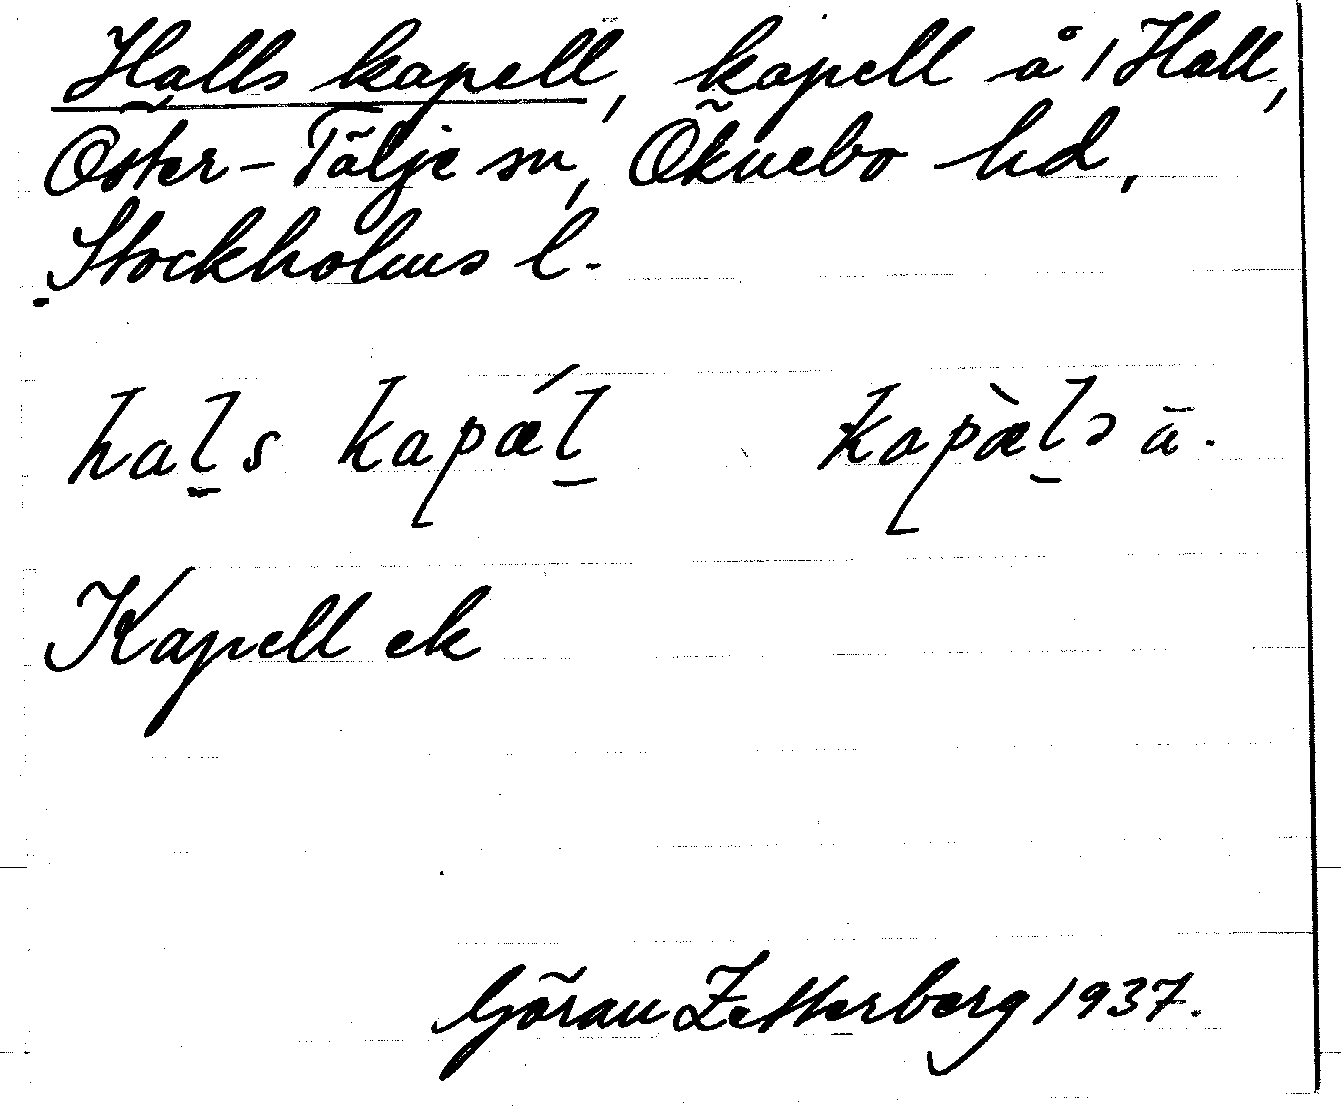 Halls kapell, kapell å 1 Hall,
Öster-Tälje sn, Öknebo hd,
Stockholms l.
hal̲s kapǽl̲ kapæ̀l̲ə ā.
Kapell ek
Göran Zetterberg 1937.